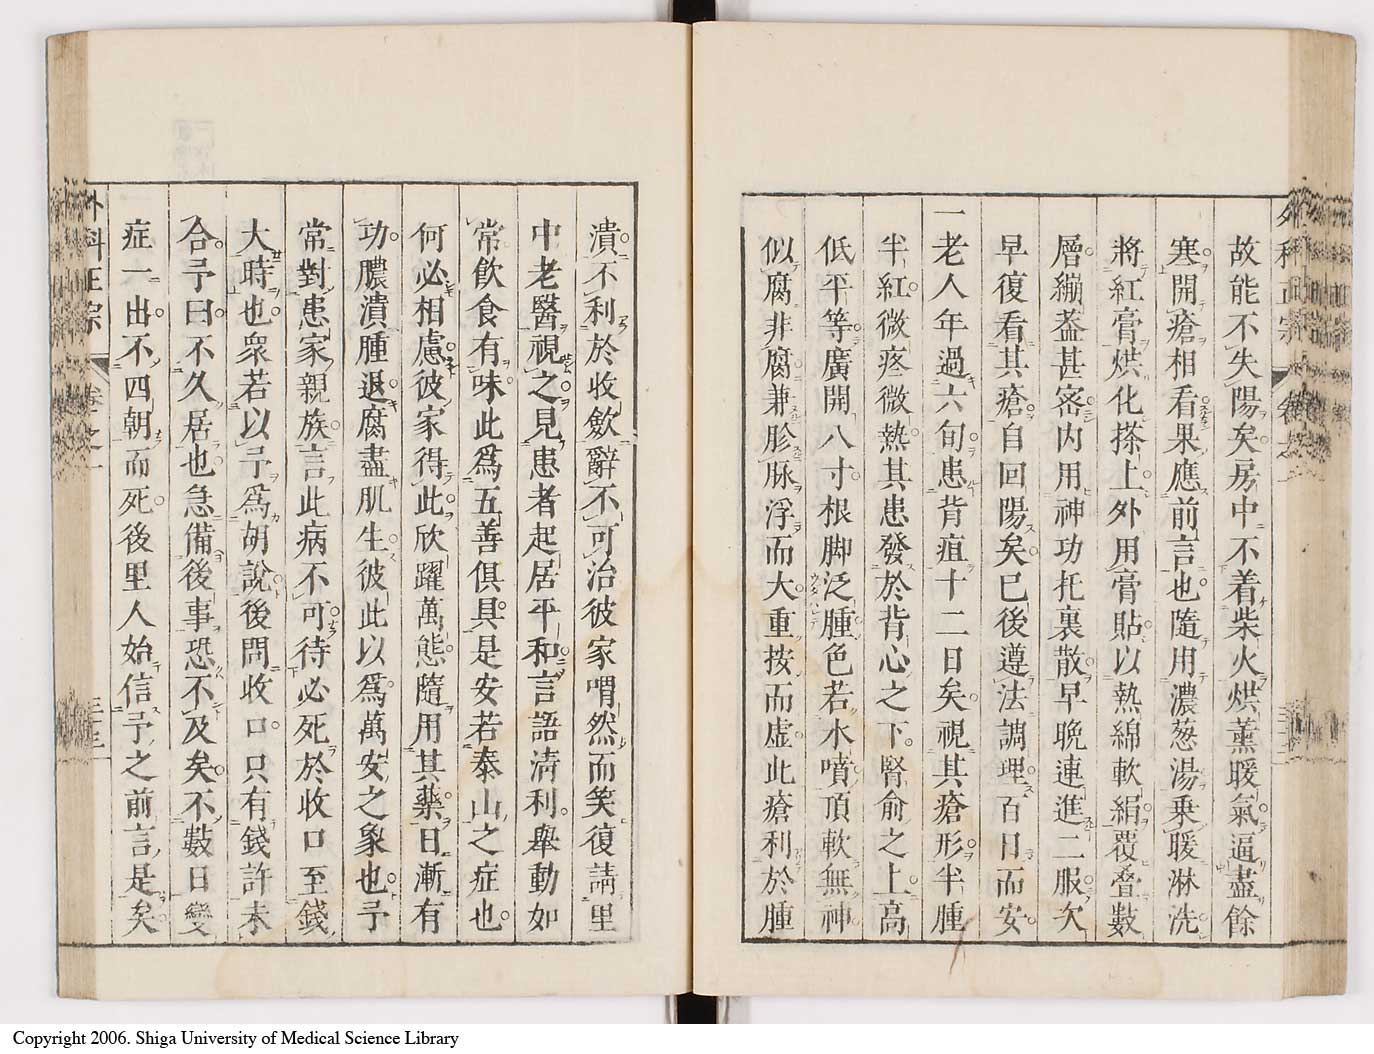 故能不失陽矣房中不着柴火烘薰暖氣逼盡餘
寒開瘡相看果應前言也隨用濃葱湯乗暖淋洗
將紅膏烘化搽上外用膏貼以熱綿軟絹覆叠數
層繃葢甚宻内用神功托裏散早晩連進二服次
早復看其瘡自回陽矣已後遵法調理百日而安
一老人年過六旬患背疽十二日矣視其瘡形半腫
半紅微疼微熱其患發於背心之下腎俞之上高
低平等廣開八寸根脚泛腫色若水噴頂軟無神
似腐非腐兼胗脉浮而大重按而虚此瘡利於腫
潰不利於收斂辭不可治彼家喟然而笑復請里
中老醫視之見患者起居平和言語清利舉動如
常飲食有味此爲五善俱具是安若泰山之症也
何必相慮彼家得此欣躍萬態隨用其藥日漸有
功膿潰腫退腐盡肌生彼此以爲萬安之象也予
常對患家親族言此病不可待必死於收口至錢
大時也衆若以予爲胡説後問收口只有錢許未
合予曰不久居也急備後事恐不及矣不數日變
症一出不四朝而死後里人始信予之前言是矣
外科正宗 卷之一 三十三
Copyright 2006. Shiga University of Medical Science Library